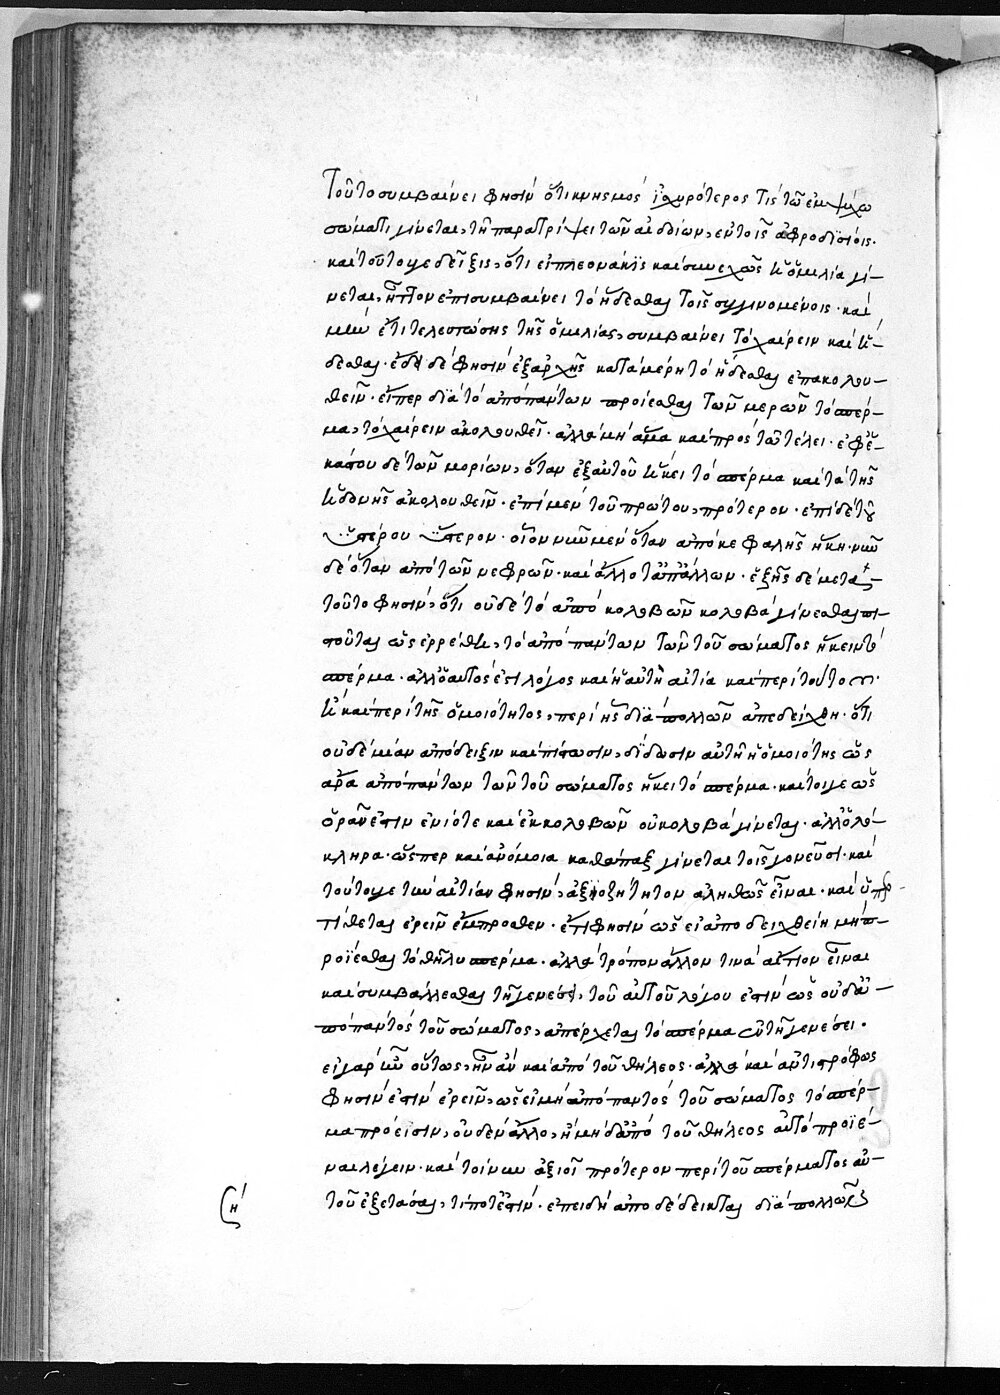 Τοῦτο συμβαίνει φησὶν ὅτι κνησμὸς ἰσχυρότερος τίς τῶ ἐμψύχω
σώματι γίνεται, τῆ παρατρίψει τῶν αἰδοίων, ἐν τοῖς ἀφροδισίοις.
καὶ τούτου γε δεῖξις, ὅτι εἰ πλεονάκις καὶ συνεχῶς ἡ ὁμιλία γί-
νεται, ἧττον ἐπισυμβαίνει τὸ ἥδεσθαι τοῖς συγγινομένοις. καὶ
μὴν ἔτι τελευτώσης τῆς ὁμιλίας, συμβαίνει τὸ χαίρειν καὶ ἥ-
δεσθαι. ἔδει δέ φησιν ἐξαρχῆς κατὰ μέρη τὸ ἥδεσθαι ἐπακολου-
θεῖν. εἴπερ διὰ τὸ ἀπὸ πάντων προΐεσθαι τῶν μερῶν τὸ σπέρ-
μα, τὸ χαίρειν ἀκολουθεῖ. ἀλλὰ μὴ ἅμα καὶ πρὸς τῶ τέλει. ἐφ' ἑ-
κάστου δὲ τῶν μορίων, ὅταν ἐξ αὐτοῦ ἥκει τὸ σπέρμα καὶ τὰ τῆς
ἡδονῆς ἀκολουθεῖν. ἐπὶ μὲν τοῦ πρώτου, πρότερον. ἐπὶ δὲ τοῦ
ὑστέρου ὕστερον. οἷον νῦν μὲν ὅταν ἀπὸ κεφαλῆς ἥκη. νῦν
δὲ ὅταν ἀπὸ τῶν νεφρῶν. καὶ ἄλλοτ' ἀπ' ἄλλων. ἑξῆς δὲ μετὰ
τοῦτο φησὶν, ὅτι οὐδὲ τὸ ἀπὸ κολοβῶν κολοβὰ γίνεσθαι πι-
στοῦται ὡς ἐρρέθη, τὸ ἀπὸ πάντων τῶν τοῦ σώματος ἥκειν τὸ
σπέρμα. ἀλλ' ὁ αὐτός ἐστι λόγος καὶ ἡ αὐτὴ αἰτία καὶ περὶ τούτου.
ἣ καὶ περὶ τῆς ὁμοιότητος, περὶ ἧς διὰ πολλῶν ἀπεδείχθη. ὅτι
οὐδεμίαν ἀπόδειξιν καὶ πίστωσιν, δίδωσιν αὐτὴ ἡ ὁμοιότης ὡς
ἄρα ἀπὸ πάντων τῶν τοῦ σώματος ἥκει τὸ σπέρμα. καίτοιγε ὡς
ὁρᾶν ἐστιν ἐνίοτε καὶ ἐκ κολοβῶν οὐ κολοβὰ γίνεται. ἀλλ' ὁλό-
κληρα. ὥσπερ καὶ ἀνόμοια καθάπαξ γίνεται τοῖς γονεῦσι. καὶ
τούτου γε τὴν αἰτίαν φησὶν, ἀξιοζήτητον ἀληθῶς εἶναι. καὶ ὑπερ-
τίθεται ἐρεῖν ἔμπροσθεν. ἔτι φησὶν ὡς εἰ ἀποδειχθείη μὴ π-
ροΐεσθαι τὸ θῆλυ σπέρμα. ἀλλὰ τρόπον ἄλλον τινὰ αἴτιον εἶναι
καὶ συμβάλλεσθαι τῆ γενέσει, τοῦ αὐτοῦ λόγου ἐστὶν ὡς οὐδ' ἀ-
πὸ παντὸς τοῦ σώματος, ἀπέρχεται τὸ σπέρμα ἐν τῆ γενέσει.
εἰ γὰρ ἦν οὕτως, ἦν ἂν καὶ ἀπὸ τοῦ θήλεος. ἀλλὰ καὶ ἀντιστρόφως
φησὶν ἐστὶν ἐρεῖν, ὡς εἰ μὴ ἀπὸ παντὸς τοῦ σώματος τὸ σπέρ-
μα πρόεισιν, οὐδὲν ἄλλο, ἢ μηδ' ἀπὸ τοῦ θήλεος αὐτὸ προϊέ-
ναι λέγειν. καὶ τοίνυν ἀξιοῖ πρότερον περὶ τοῦ σπέρματος αὐ-
τοῦ ἐξετάσαι, τί ποτ' ἐστίν. ἐπειδὴ ἀποδέδεικται διὰ πολλῶν
ἡ